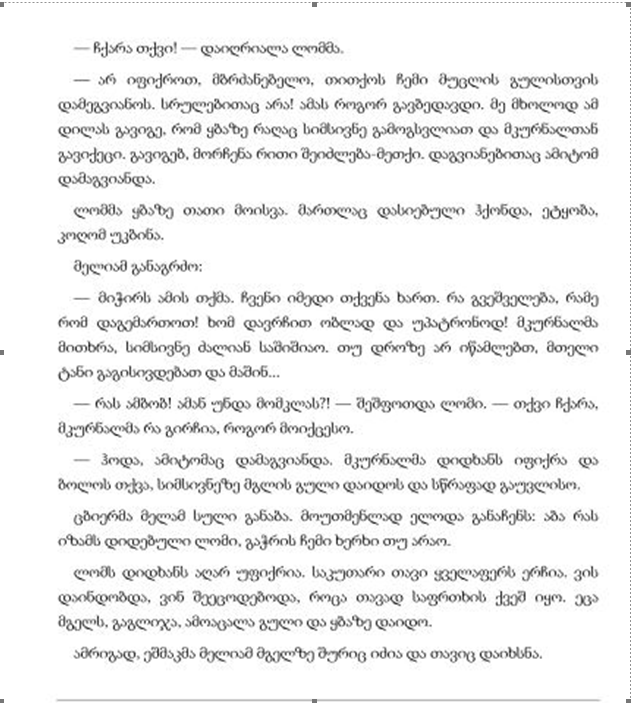 — ჩქარა თქვი! — დაიღრიალა ლომმა.
— არ იფიქროთ, მბრძანებელო, თითქოს ჩემი მუცლის გულისთვის
დამეგვიანოს. სრულებითაც არა! ამას როგორ გავბედავდი. მე მხოლოდ ამ
დილას გავიგე, რომ ყბაზე რაღაც სიმსივნე გამოგსვლიათ და მკურნალთან
გავიქეცი. გავიგებ, მორჩენა რითი შეიძლება-მეთქი. დაგვიანებითაც ამიტომ
დამაგვიანდა.
ლომმა ყბაზე თათი მოისვა. მართლაც დასიებული ჰქონდა, ეტყობა,
კოღომ უკბინა.
მელიამ განაგრძო:
— მიჭირს ამის თქმა. ჩვენი იმედი თქვენა ხართ. რა გვეშველება, რამე
რომ დაგემართოთ! ხომ დავრჩით ობლად და უპატრონოდ! მკურნალმა
მითხრა, სიმსივნე ძალიან საშიშიაო. თუ დროზე არ იწამლებთ, მთელი
ტანი გაგისივდებათ და მაშინ...
— რას ამბობ! ამან უნდა მომკლას?! — შეშფოთდა ლომი. — თქვი ჩქარა,
მკურნალმა რა გირჩია, როგორ მოიქცესო.
— ჰოდა, ამიტომაც დამაგვიანდა. მკურნალმა დიდხანს იფიქრა და
ბოლოს თქვა, სიმსივნეზე მგლის გული დაიდოს და სწრაფად გაუვლისო.
ცბიერმა მელამ სული განაბა. მოუთმენლად ელოდა განაჩენს: აბა რას
იზამს დიდებული ლომი, გაჭრის ჩემი ხერხი თუ არაო.
ლომს დიდხანს აღარ უფიქრია. საკუთარი თავი ყველაფერს ერჩია. ვის
დაინდობდა, ვინ შეეცოდებოდა, როცა თავად საფრთხის ქვეშ იყო. ეცა
მგელს, გაგლიჯა, ამოაცალა გული და ყბაზე დაიდო.
ამრიგად, ეშმაკმა მელიამ მგელზე შურიც იძია და თავიც დაიხსნა.